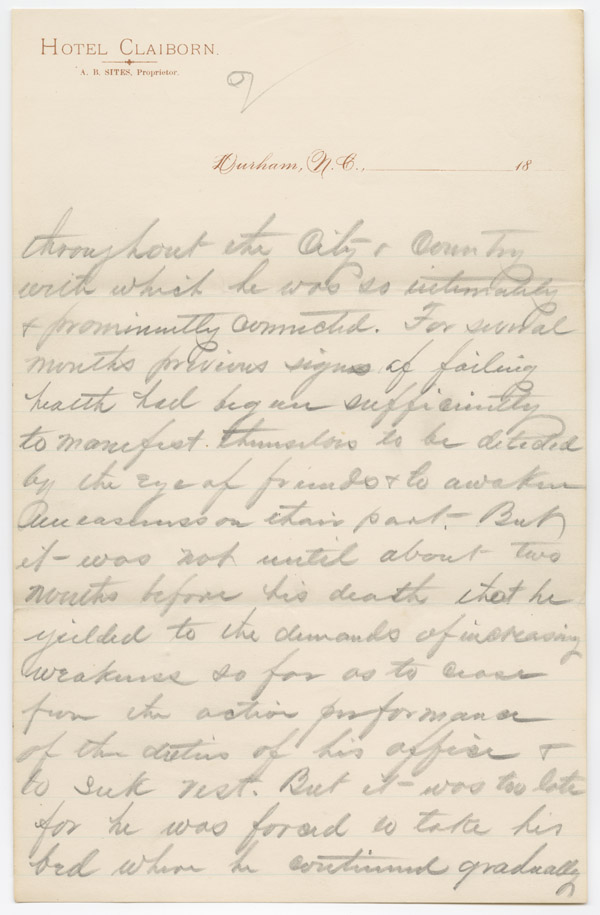 HOTEL CLAIBORN.
A. B. SITES, Proprietor.
2
Durham, N. C., 18
throughout the City & Country
with which he was so intimately
& prominently connected. For several
months previous signs of failing
health had begun sufficiently
to manifest themselves to be detected
by the eye of friends & to awaken
uneasiness on their part. But
it was not until about two
months before his death that he
yielded to the demands of increasing
weakness so far as to cease
from the active performance
of the duties of his office &
to seek rest. But it was too late
for he was forced to take his
bed where he continued gradually